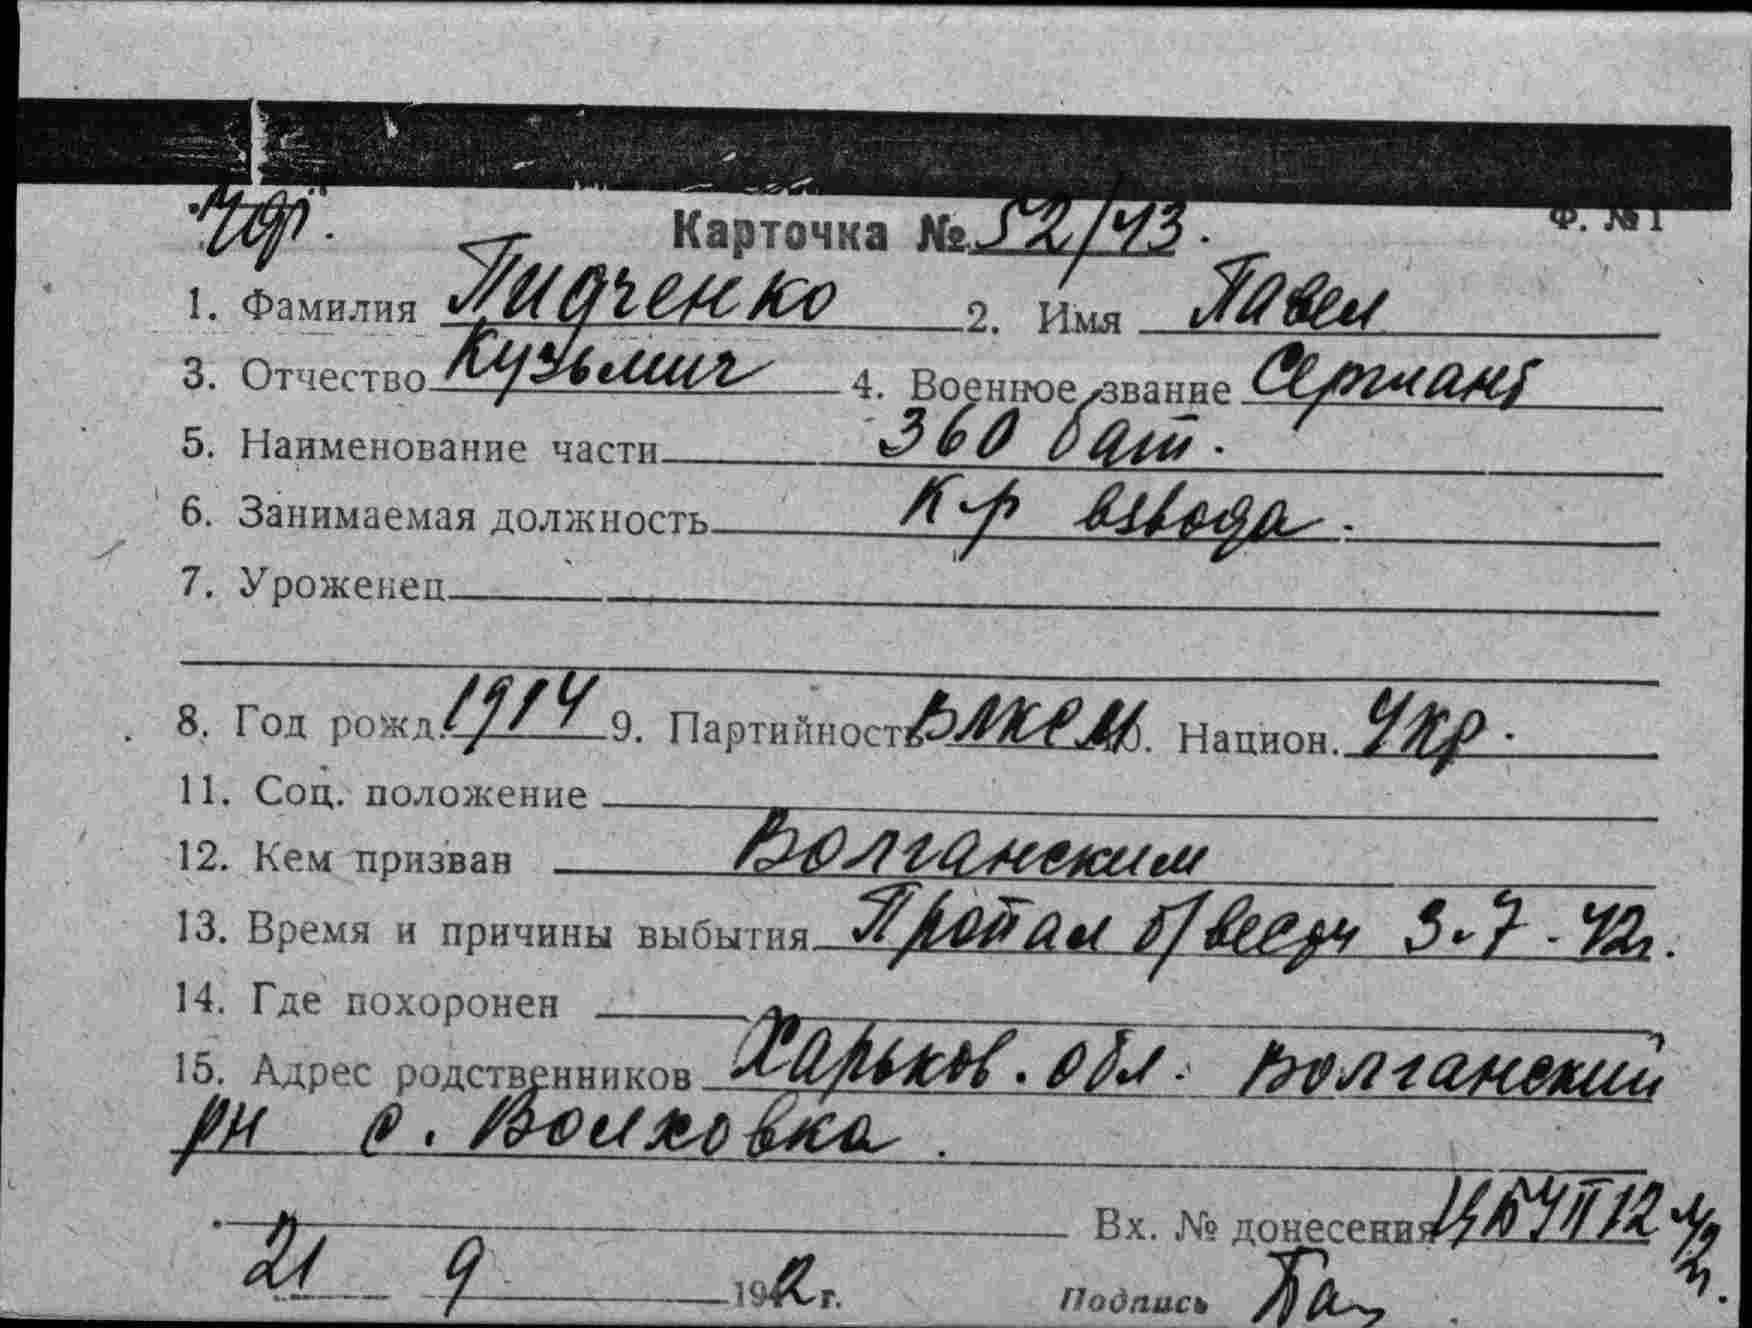 Карточка № 52/43. Ф. № 1
1. Фамилия Пидченко 2. Имя Павел
3. Отчество Кузьмич 4. Военное звание Сержант
5. Наименование части 360 бат.
6. Занимаемая должность К-р взвода.
7. Уроженец
8. Год рожд. 1914 9. Партийность ВЛКСМ 10. Национ. Укр.
11. Соц. положение
12. Кем призван Волчанским
13. Время и причины выбытия Пропал б/вести 3-7-42г.
14. Где похоронен
15. Адрес родственников Харьков. обл. Волчанский
рн с. Волховка.
Вх. № донесения
21 9 1942 г. Подпись